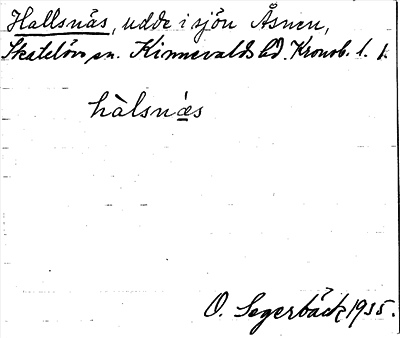 Hallsnäs, udde i sjön Åsnen,
Skatelöv sn. Kinnevalds hd. Kronob. l.
hàlsnæs
O. Segerbäck 1935.